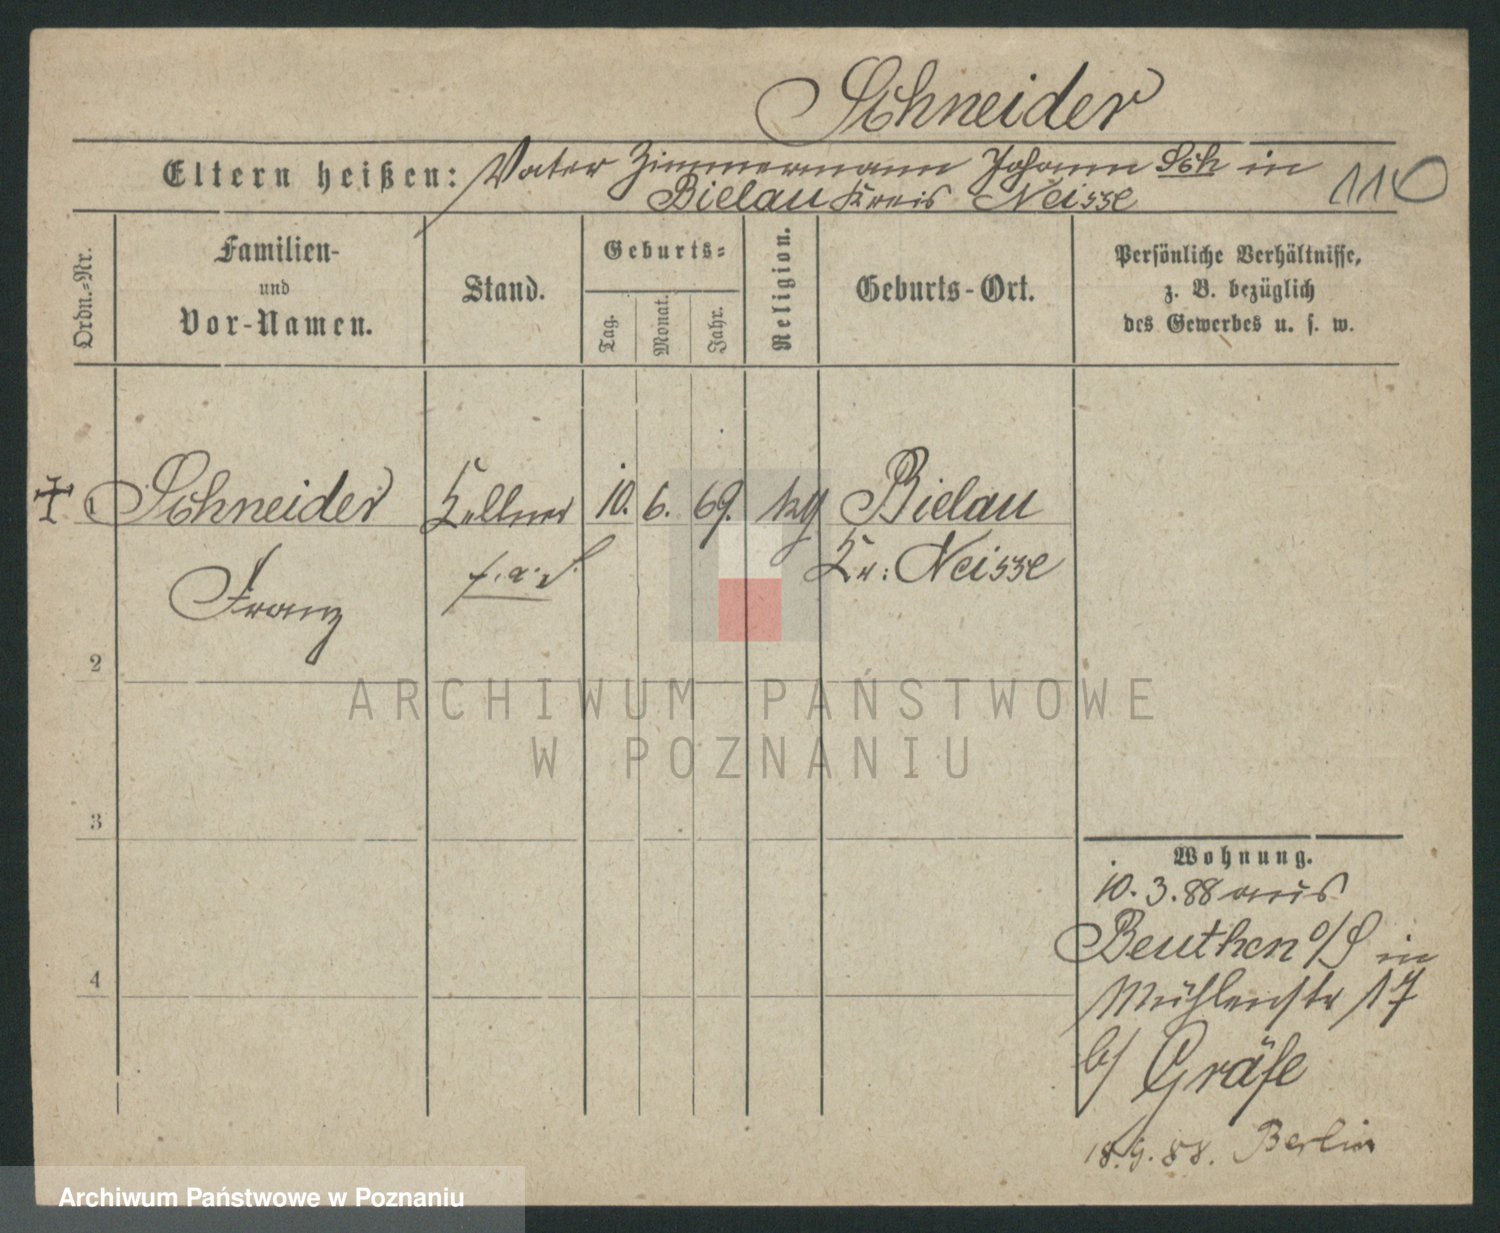 Schneider
Eltern heißen: Vater Zimmermann Johann Sch in
Bielau Kreis Neisse
110
Ordn.-Nr.
Familien-
und
Vor-Namen.
Stand.
Geburts-
Tag.
Monat.
Jahr.
Religion.
Geburts-Ort.
Persönliche Verhältnisse,
z. B. bezüglich
des Gewerbes u. s. w.
1 Schneider Kellner 10. 6. 69. kg Bielau
Franz Kr: Neisse
2
3
4
ARCHIWUM PAŃSTWOWE
W POZNANIU
Wohnung.
10. 3. 88 aus
Beuthen o/S in
Mühlenstr 17
b/ Gräfe
18. 9. 88. Berlin
Archiwum Państwowe w Poznaniu